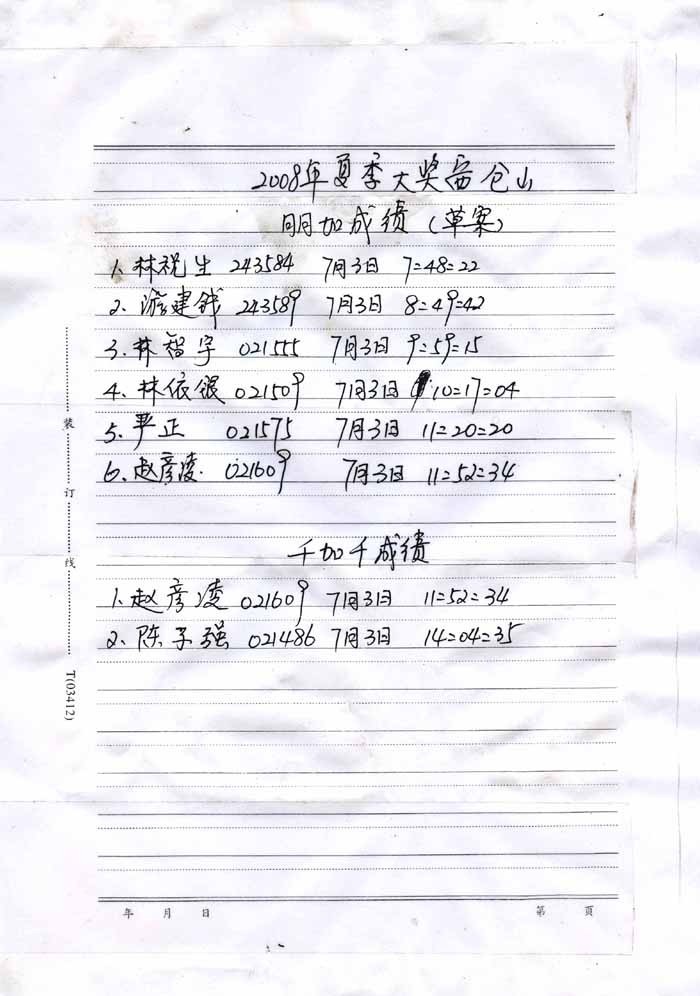 2008年夏季大奖西仓山
朋加成绩(草案)
1、林祝生 243584 7月3日 7=48=22
2、游建钱 243589 7月3日 8=49=42
3、林智宇 021555 7月3日 9=59=15
4、林依银 021509 7月3日 10=17=04
5、严正 021575 7月3日 11=20=20
6、赵彦凌 021609 7月3日 11=52=34
千加千成绩
1、赵彦凌 021609 7月3日 11=52=34
2、陈子强 021486 7月3日 14=04=35
装 订 线
T(03412)
年 月 日
第 页